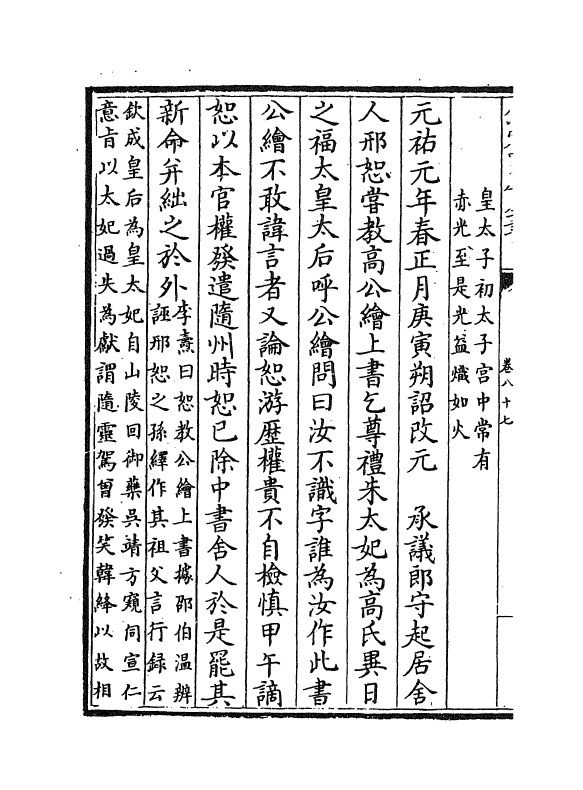 卷八十七
皇太子初太子宮中常有
赤光至是光益熾如火
元祐元年春正月庚寅朔詔改元　承議郎守起居舍
人邢恕嘗教高公繪上書乞尊禮朱太妃為高氏異日
之福太皇太后呼公繪問曰汝不識字誰為汝作此書
公繪不敢諱言者又論恕游歷權貴不自檢慎甲午謫
恕以本官權發遣隨州時恕已除中書舍人於是罷其
新命并絀之於外李燾曰恕教公繪上書據邵伯溫辨
誣邢恕之孫繹作其祖父言行録云
欽成皇后為皇太妃自山陵回御藥吳靖方窺伺宣仁
意㫖以太妃過失為獻謂隨靈駕曽發笑韓絳以故相